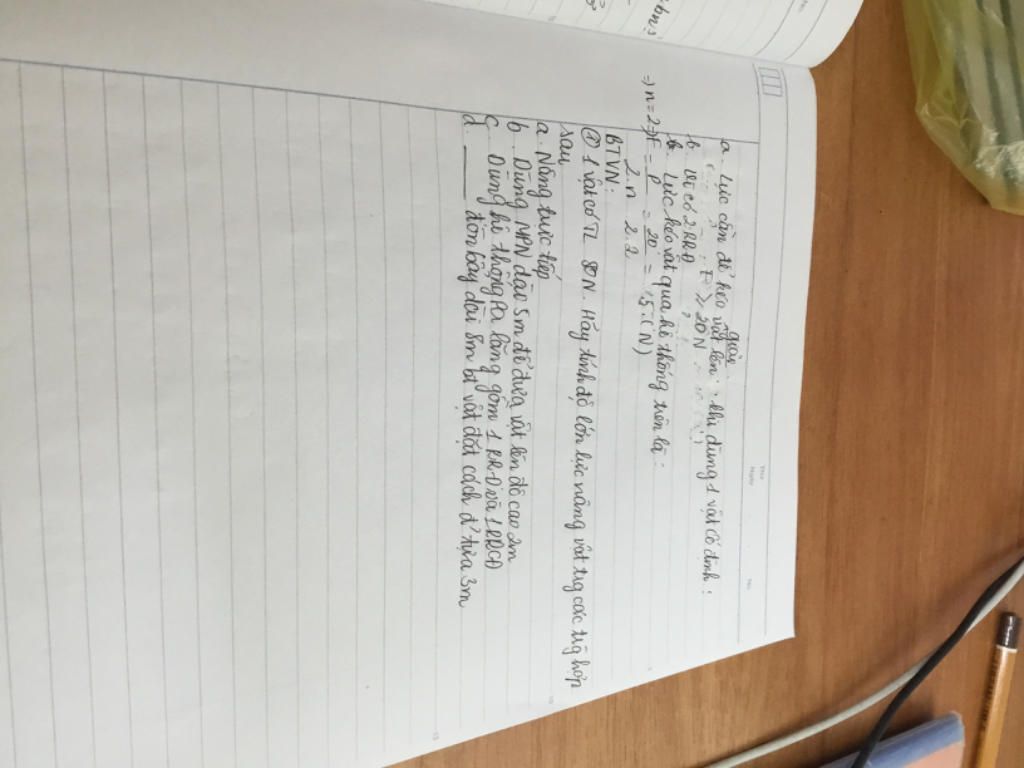 a. Lực cần để kéo vật lên khi dùng 1 vật cố định:
F ≥ 20N
b. Vì có 2 RRĐ
Lực kéo vật qua hệ thống trên là:
=> n = 2 => F = P / 2.n = 20 / 2.2 = 5 (N)
BTVN:
① 1 vật có TL 80N. Hãy tính độ lớn lực nâng vật trg các trg hợp
sau
a. Nâng trực tiếp
b. Dùng MPN dài 5m để đưa vật lên độ cao 2m
c. Dùng hệ thống Pa lăng gồm 1 RRĐ và 1 RRCĐ
d. ___ đòn bẩy dài 8m bt vật đặt cách đ' tựa 3m